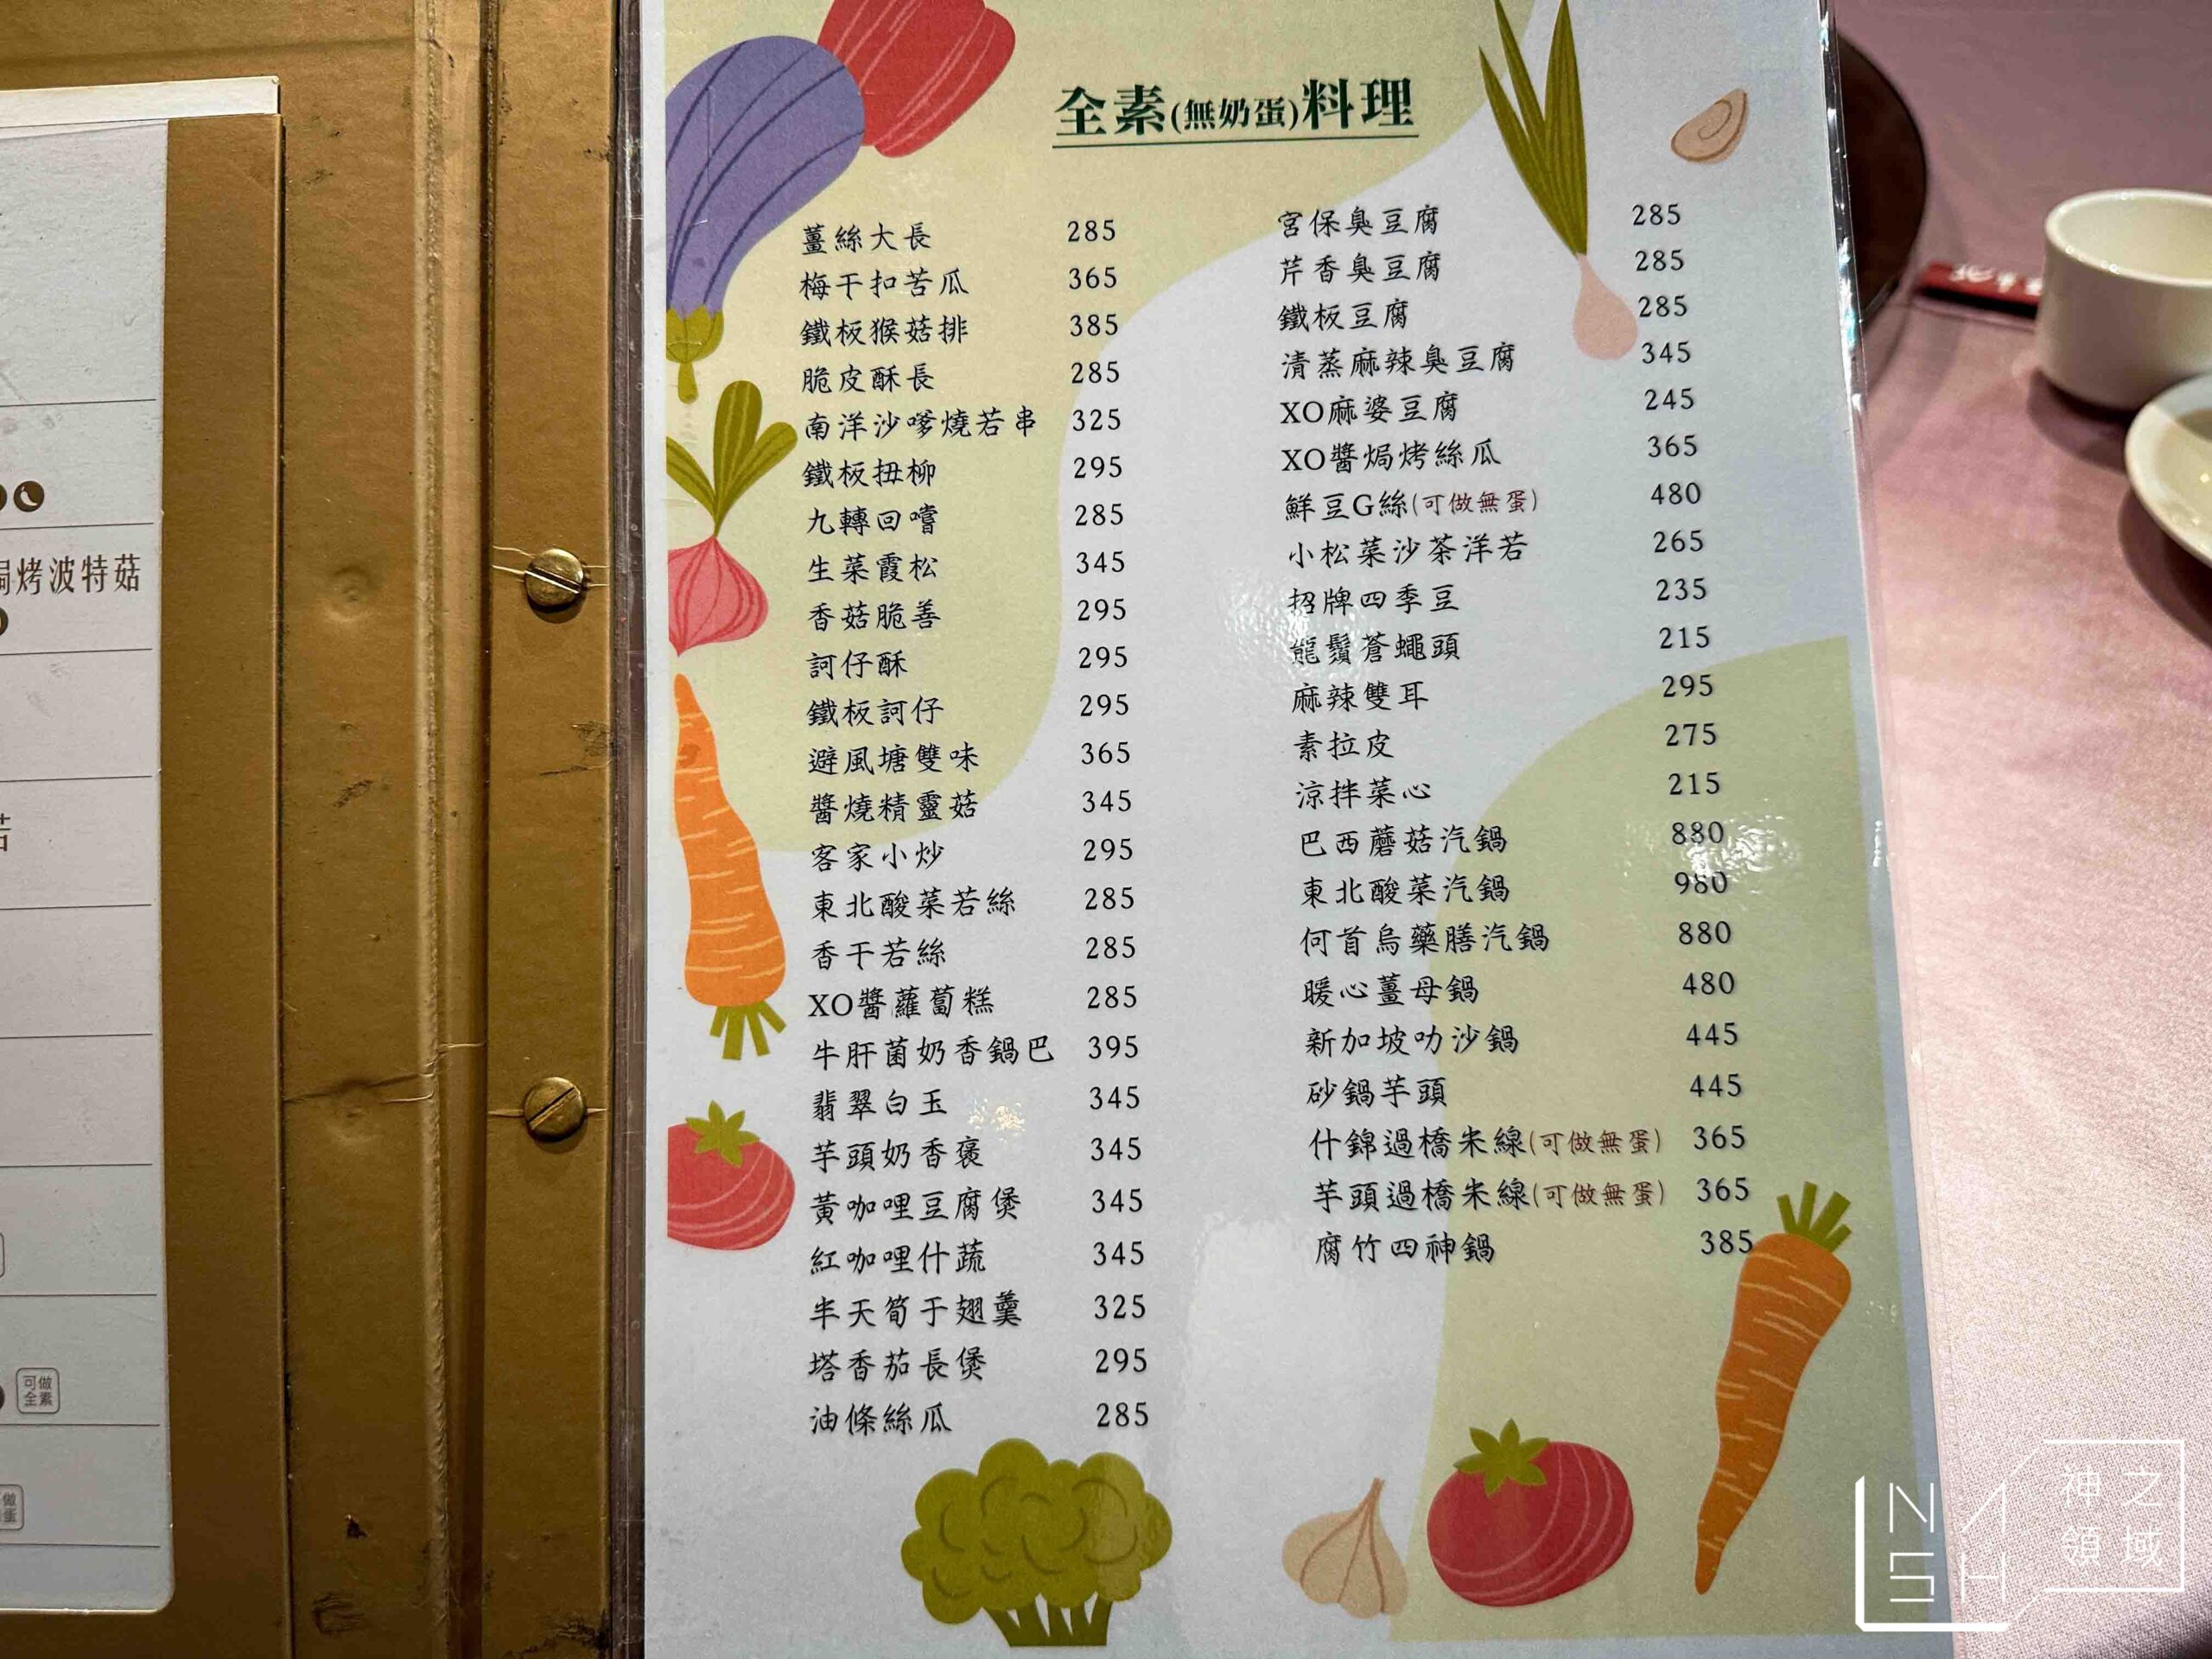 全素(無奶蛋)料理
薑絲大長 285
梅干扣苦瓜 365
鐵板猴菇排 385
脆皮酥長 285
南洋沙嗲燒若串 325
鐵板扭柳 295
九轉回嚐 285
生菜霞松 345
香菇脆善 295
訶仔酥 295
鐵板訶仔 295
避風塘雙味 365
醬燒精靈菇 345
客家小炒 295
東北酸菜若絲 285
香干若絲 285
XO醬蘿蔔糕 285
牛肝菌奶香鍋巴 395
翡翠白玉 345
芋頭奶香褒 345
黃咖哩豆腐煲 345
紅咖哩什蔬 345
半天筍于翅羹 325
塔香茄長煲 295
油條絲瓜 285
宮保臭豆腐 285
芹香臭豆腐 285
鐵板豆腐 285
清蒸麻辣臭豆腐 345
XO麻婆豆腐 245
XO醬焗烤絲瓜 365
鮮豆G絲(可做無蛋) 480
小松菜沙茶洋若 265
招牌四季豆 235
龍鬚蒼蠅頭 215
麻辣雙耳 295
素拉皮 275
涼拌菜心 215
巴西蘑菇汽鍋 880
東北酸菜汽鍋 980
何首烏藥膳汽鍋 880
暖心薑母鍋 480
新加坡叻沙鍋 445
砂鍋芋頭 445
什錦過橋米線(可做無蛋) 365
芋頭過橋米線(可做無蛋) 365
腐竹四神鍋 385
焗烤波特菇
可做
全素
NASH
神之
領域